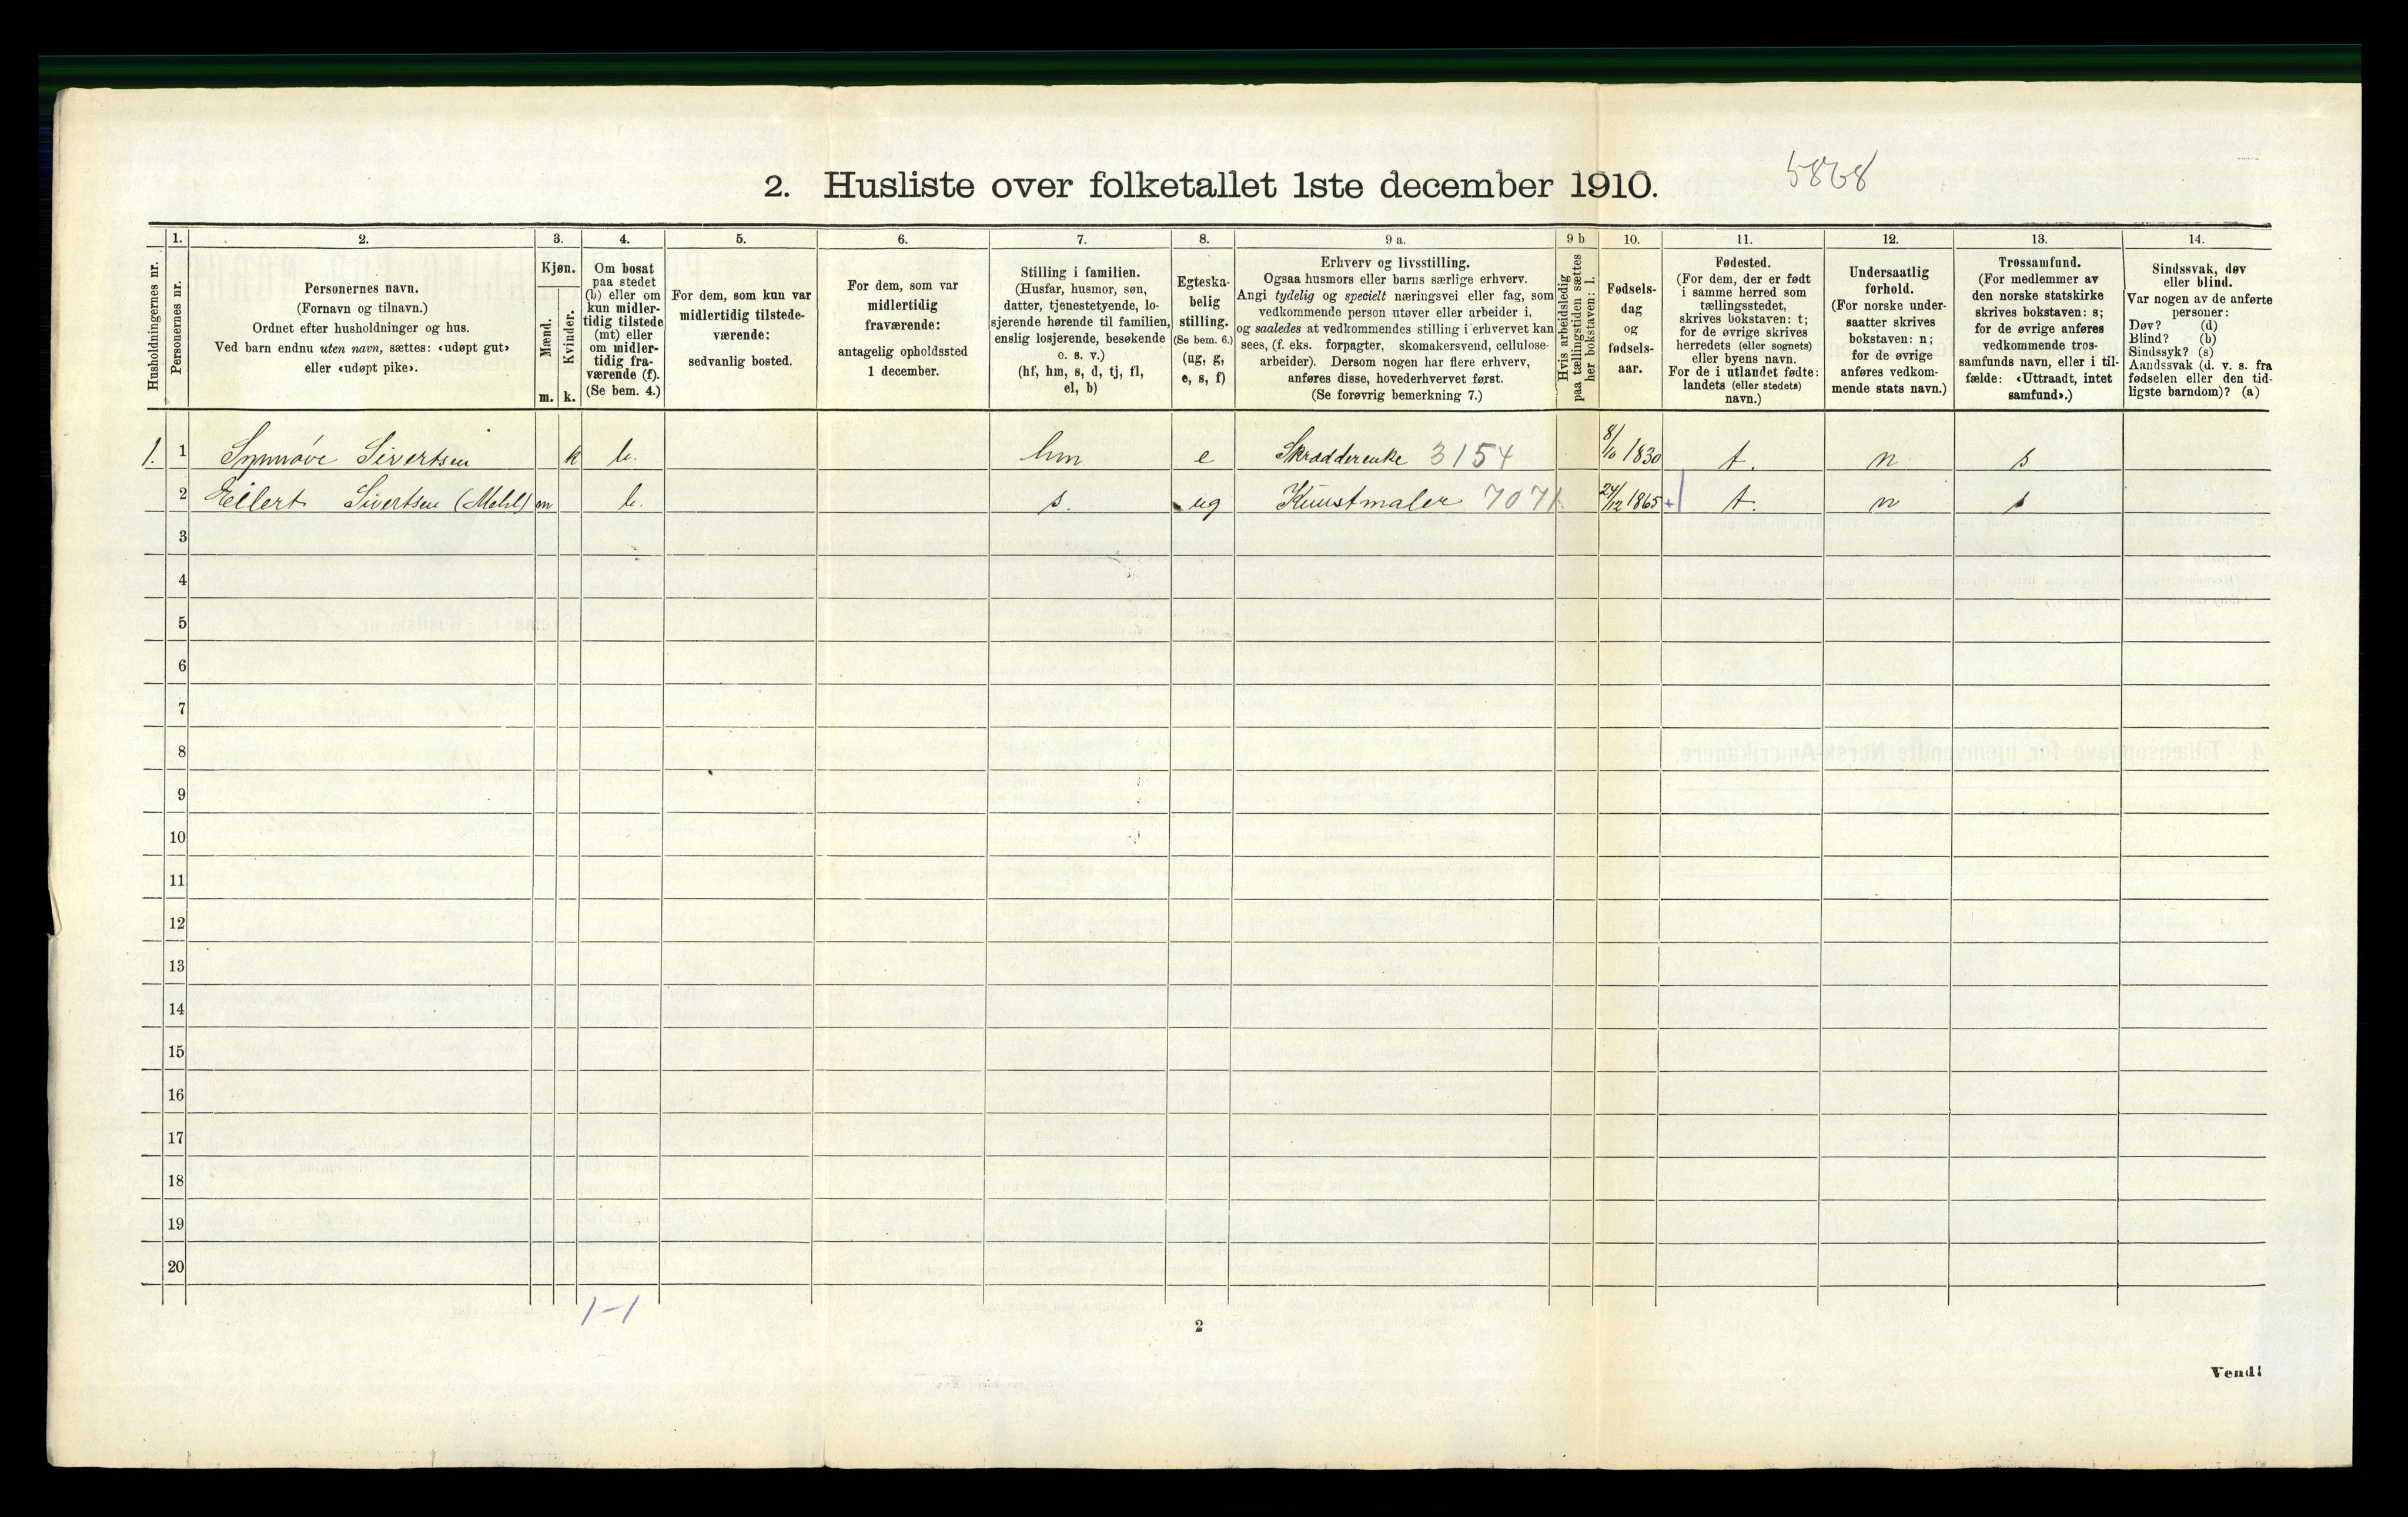 2. Husliste over folketallet 1ste december 1910.
5868
1. 2. 3. 4. 5. 6. 7. 8. 9 a. 9 b 10. 11. 12. 13. 14.
Husholdningernes nr.
Personernes nr.
Personernes navn.
(Fornavn og tilnavn.)
Ordnet efter husholdninger og hus.
Ved barn endnu uten navn, sættes: «udøpt gut»
eller «udøpt pike».
Kjøn.
Mænd.
Kvinder.
m. k.
Om bosat
paa stedet
(b) eller om
kun midler-
tidig tilstede
(mt) eller
om midler-
tidig fra-
værende (f).
(Se bem. 4.)
For dem, som kun var
midlertidig tilstede-
værende:
sedvanlig bosted.
For dem, som var
midlertidig
fraværende:
antagelig opholdssted
1 december.
Stilling i familien.
(Husfar, husmor, søn,
datter, tjenestetyende, lo-
sjerende hørende til familien,
enslig losjerende, besøkende
o. s. v.)
(hf, hm, s, d, tj, fl,
el, b)
Egteska-
belig
stilling.
(Se bem. 6.)
(ug, g,
e, s, f)
Erhverv og livsstilling.
Ogsaa husmors eller barns særlige erhverv.
Angi tydelig og specielt næringsvei eller fag, som
vedkommende person utøver eller arbeider i,
og saaledes at vedkommendes stilling i erhvervet kan
sees, (f. eks. forpagter, skomakersvend, cellulose-
arbeider). Dersom nogen har flere erhverv,
anføres disse, hovederhvervet først.
(Se forøvrig bemerkning 7.)
Hvis arbeidsledig
paa tællingstiden sættes
her bokstaven: l.
Fødsels-
dag
og
fødsels-
aar.
Fødested.
(For dem, der er født
i samme herred som
tællingsstedet,
skrives bokstaven: t;
for de øvrige skrives
herredets (eller sognets)
eller byens navn.
For de i utlandet fødte:
landets (eller stedets)
navn.)
Undersaatlig
forhold.
(For norske under-
saatter skrives
bokstaven: n;
for de øvrige
anføres vedkom-
mende stats navn.)
Trossamfund.
(For medlemmer av
den norske statskirke
skrives bokstaven: s;
for de øvrige anføres
vedkommende tros-
samfunds navn, eller i til-
fælde: «Uttraadt, intet
samfund».)
Sindssvak, døv
eller blind.
Var nogen av de anførte
personer:
Døv? (d)
Blind? (b)
Sindssyk? (s)
Aandssvak (d. v. s. fra
fødselen eller den tid-
ligste barndom)? (a)
1. 1 Synnøve Sivertsen k b. hm e Skrædderenke 3154 8/10 1830 t. n s
2 Eilert Sivertsen (Mehl) m b. s. ug Kunstmaler 7071 24/12 1865 + t. n s
3
4
5
6
7
8
9
10
11
12
13
14
15
16
17
18
19
20
1-1
2
Vend!